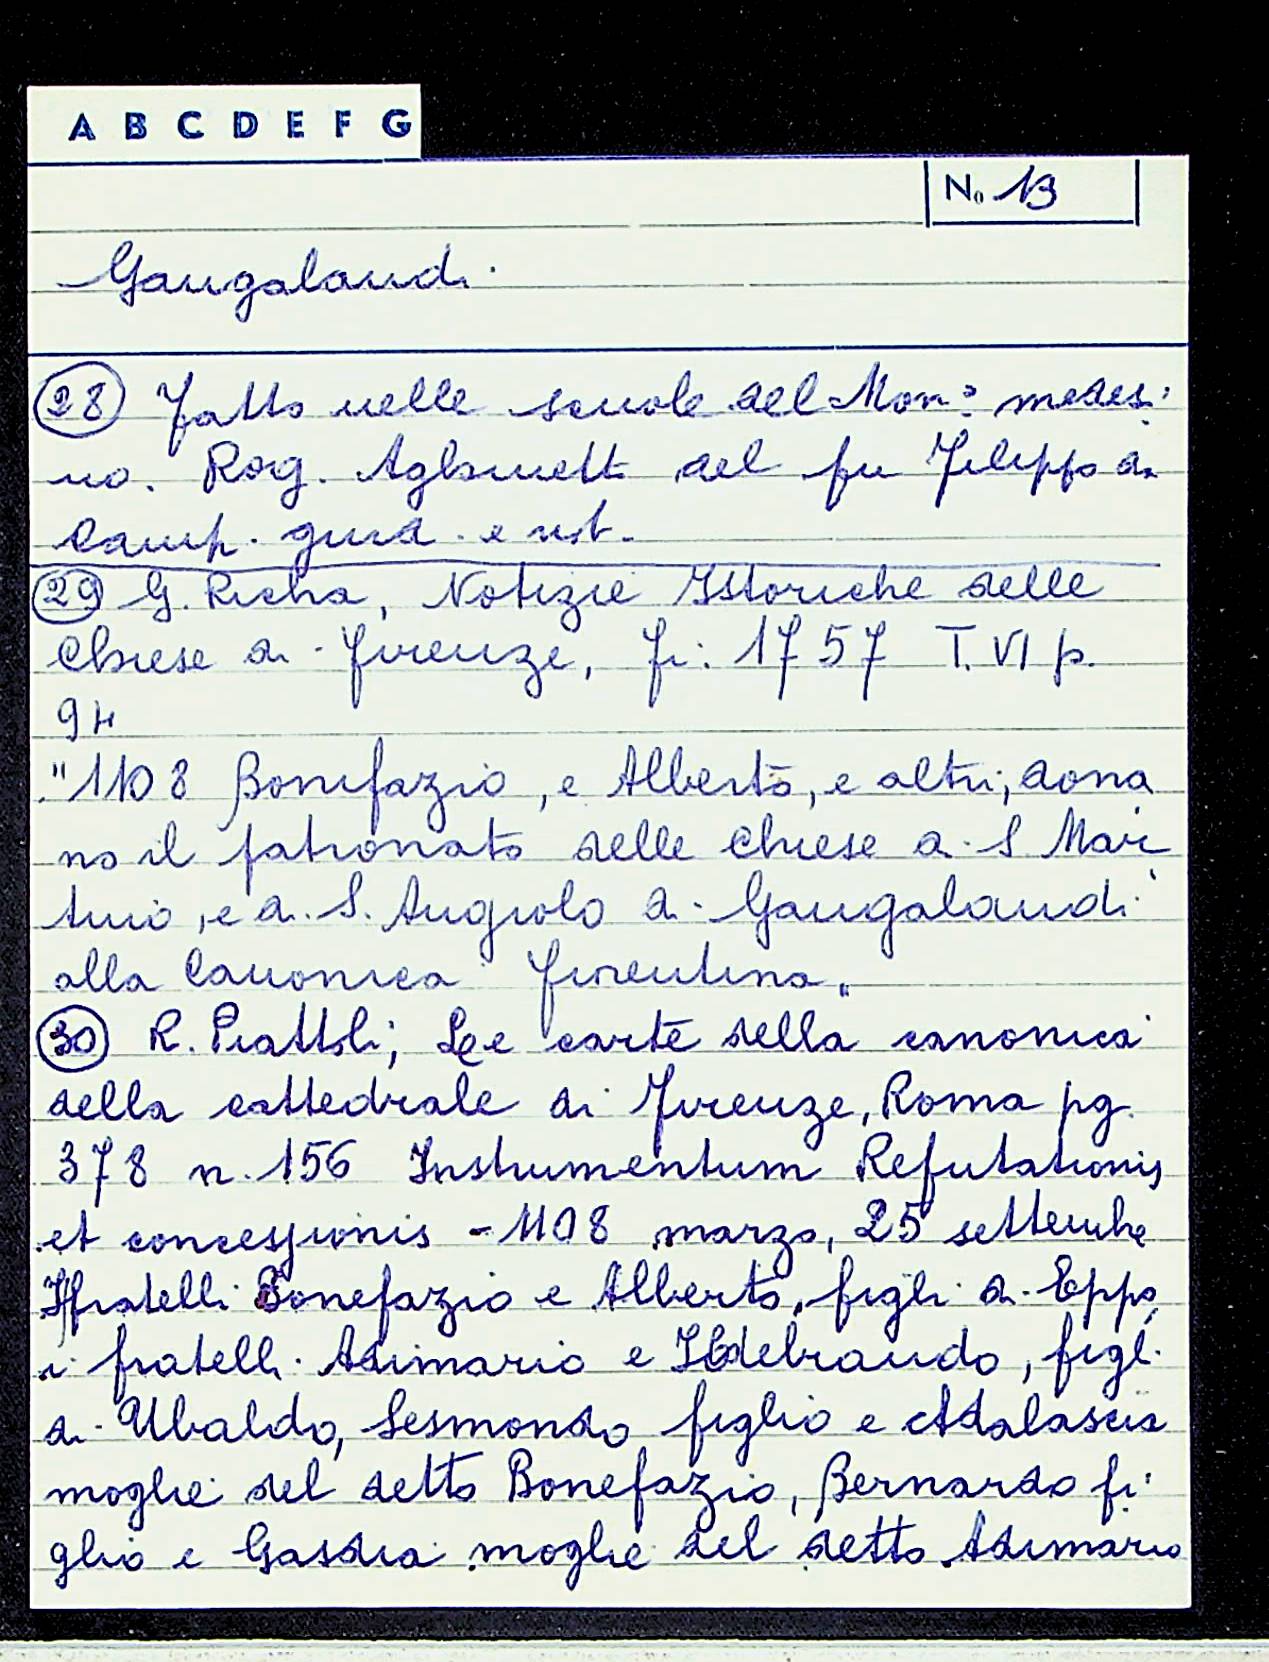 A B C D E F G
No 13
Gangalandi
(28) Fatto nelle scuole del Mon.o medesi
mo. Rog. del fu Filippo di
Camp. giud. e not.
(29) G. Richa, Notizie Istoriche delle
Chiese di Firenze, Fi: 1757 T. VI p.
94
"1108 Bonifazio, e Alberto, e altri, dona
no il patronato delle Chiese di S Mar
tino, e di S. Angiolo a Gangalandi
alla Canonica fiorentina"
(30) R. Piattoli, Le carte della canonica
della cattedrale di Firenze, Roma pg.
378 n. 156 Instrumentum Refutationis
et concessionis - 1108 marzo, 25 settembre
I fratelli Bonefazio e Alberto, figli di Eppo,
i fratelli Adimario e Ildebrando, figli
di Ubaldo, Sesmondo figlio e Adalascia
moglie del detto Bonefazio, Bernardo fi
glio e Gasdia moglie del detto Adimario